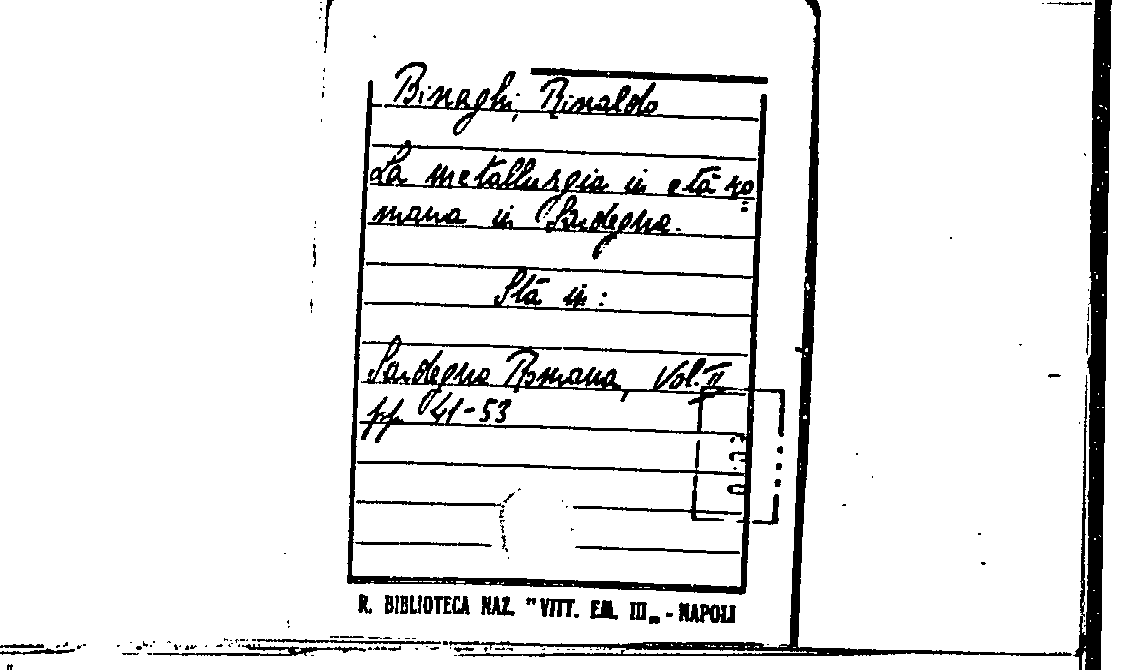 Binaghi, Rinaldo
La metallurgia in età ro=
mana in Sardegna.
Stà in:
Sardegna Romana, Vol. II
pp. 41-53
R. BIBLIOTECA NAZ. "VITT. EM. III„ - NAPOLI